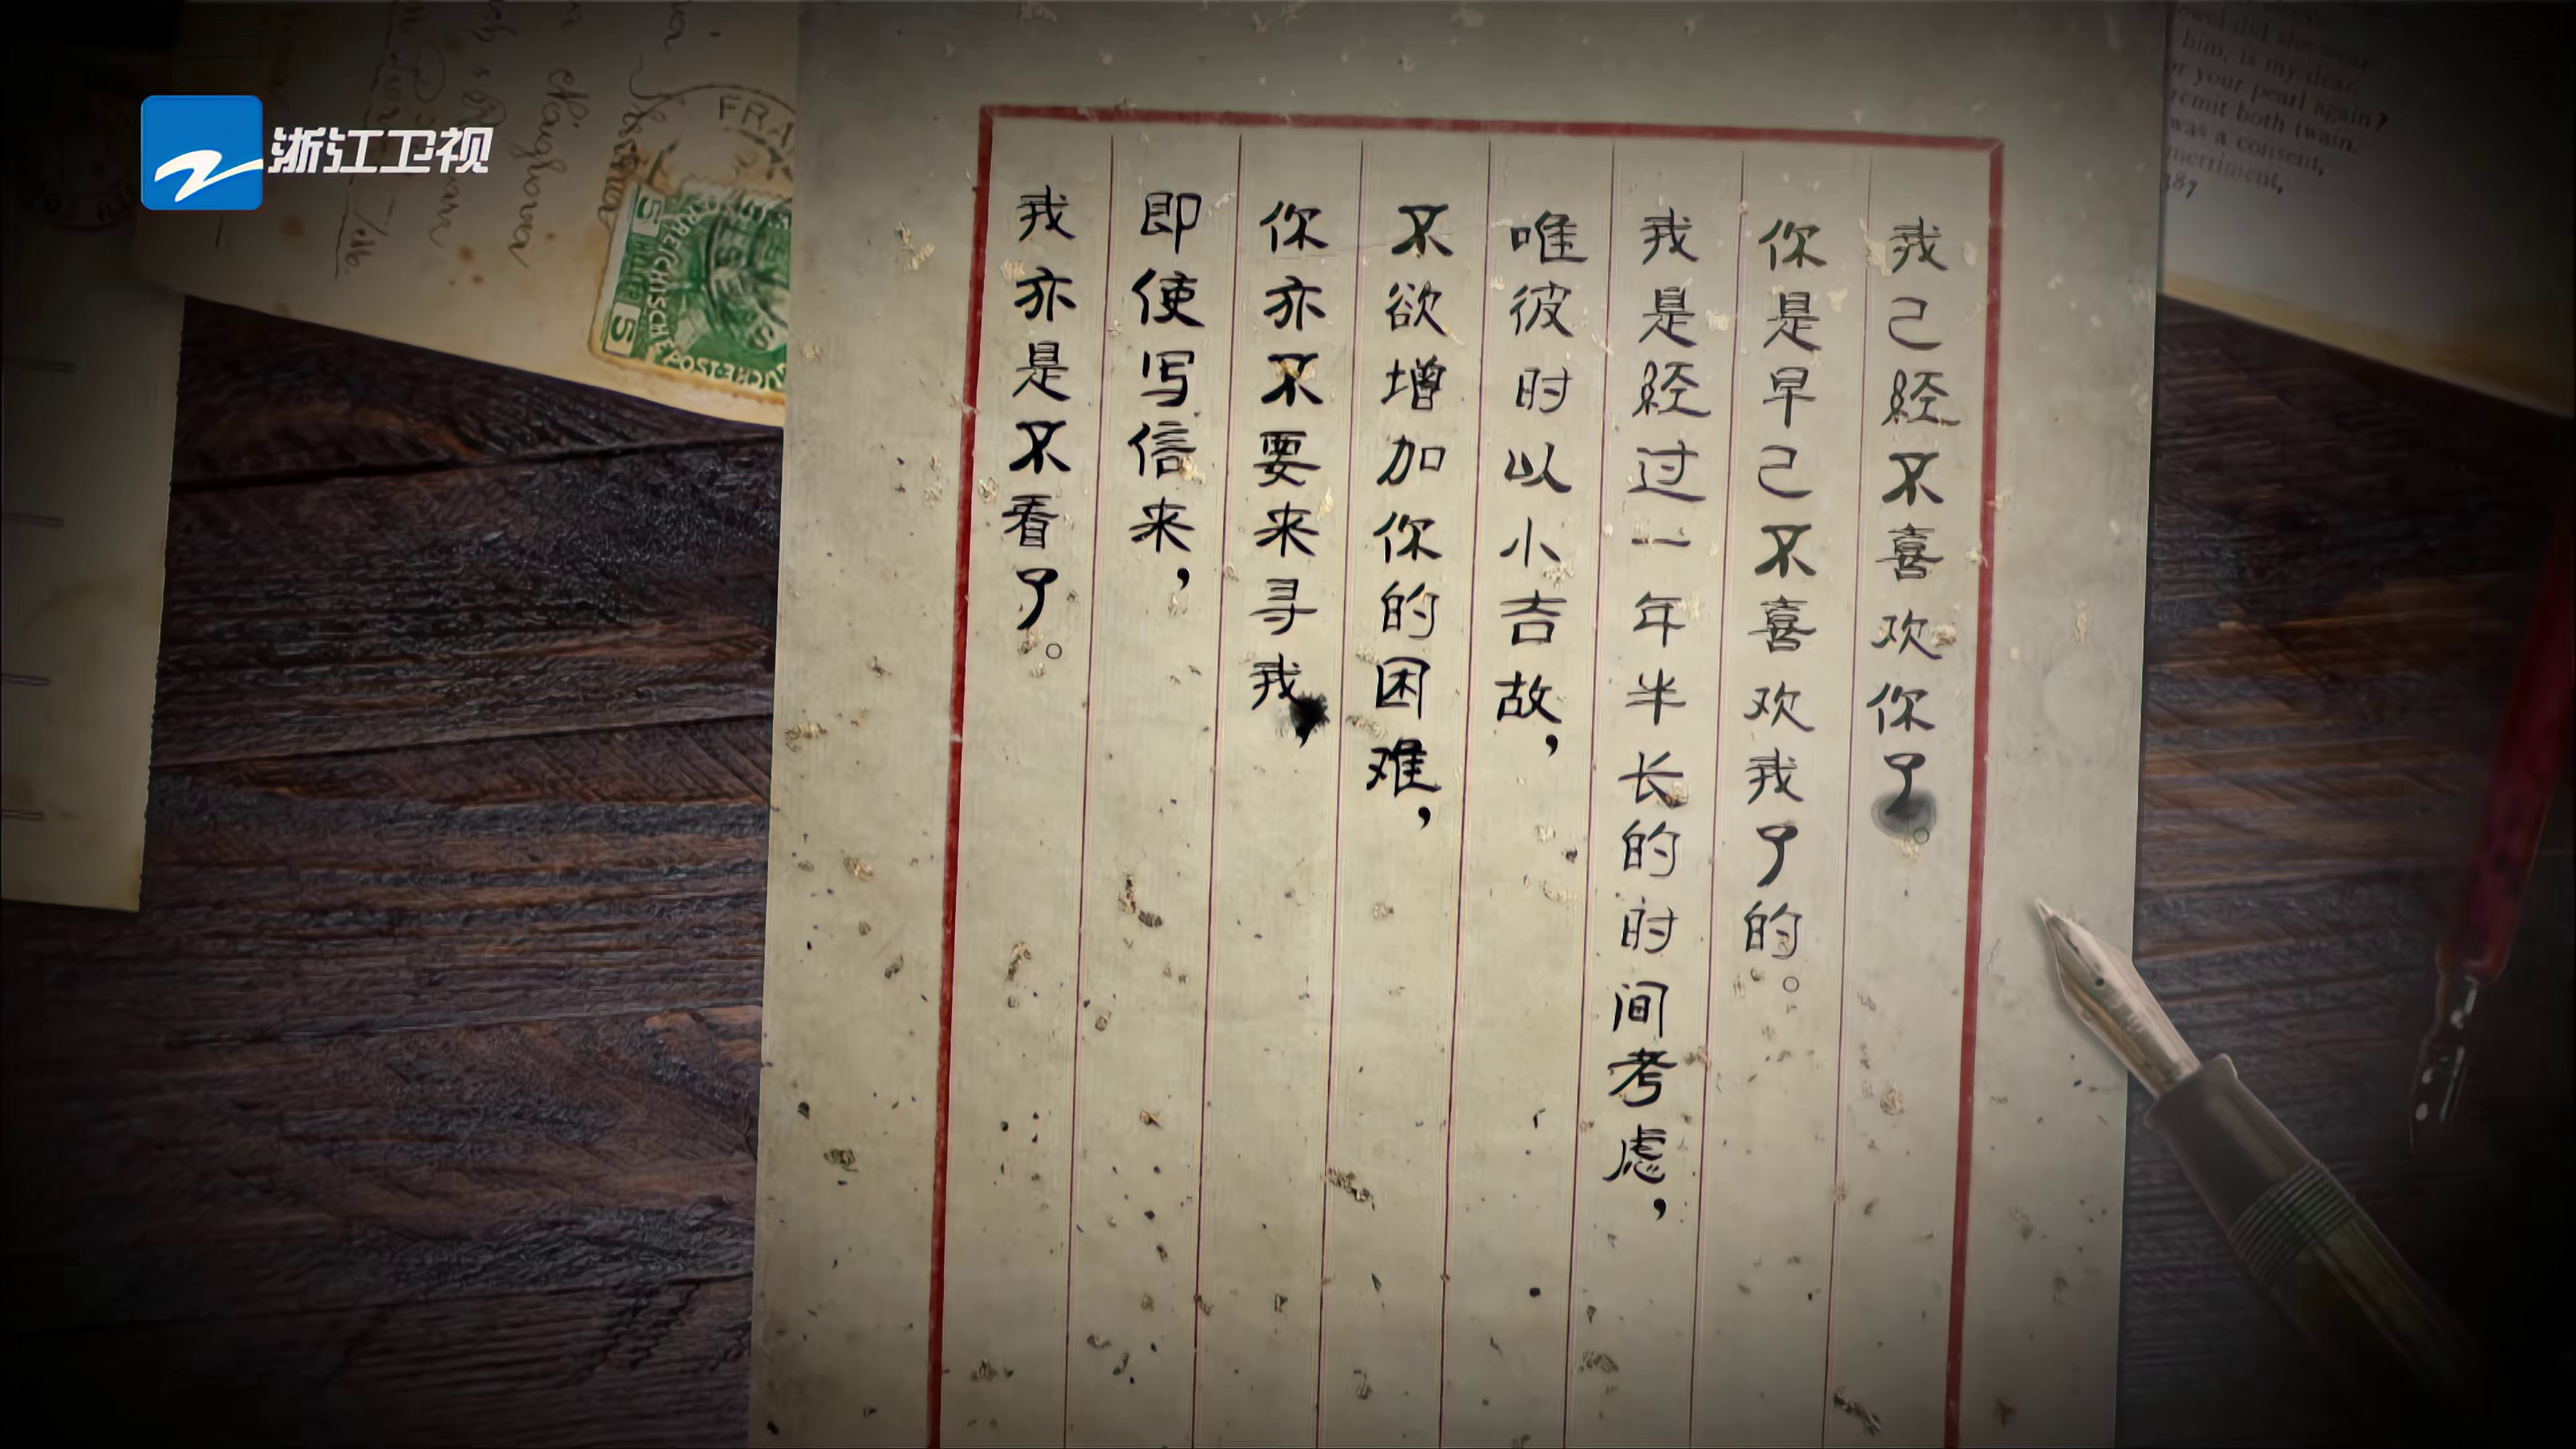 浙江卫视
我己经不喜欢你了。
你是早己不喜欢我了的。
我是经过一年半长的时间考虑，
唯彼时以小吉故，
不欲增加你的困难，
你亦不要来寻我，
即使写信来，
我亦是不看了。
FRA
5
5
him, is my dear.
or your pearl again?
remit both twain.
was a consent,
merriment,
387